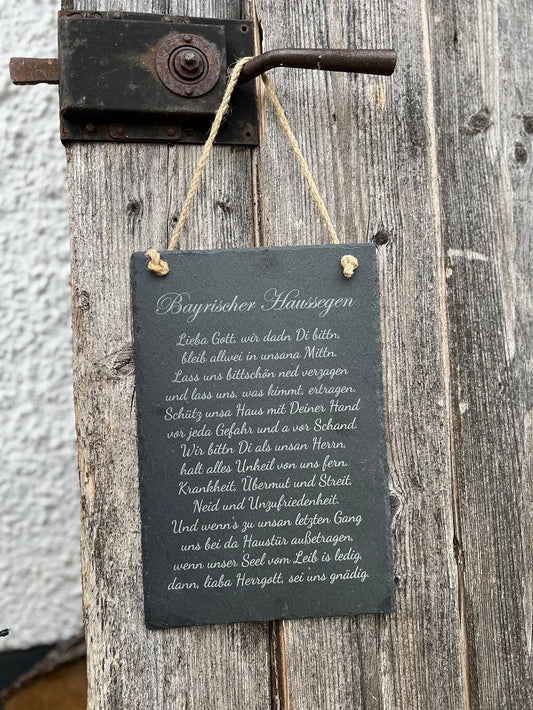 Bayrischer Haussegen
Lieba Gott, wir dadn Di bittn,
bleib allwei in unsana Mittn.
Lass uns bittschön ned verzagen
und lass uns, was kimmt, ertragen.
Schütz unsa Haus mit Deiner Hand
vor jeda Gefahr und a vor Schand.
Wir bittn Di als unsan Herrn,
halt alles Unheil von uns fern.
Krankheit, Übermut und Streit,
Neid und Unzufriedenheit.
Und wenn's zu unsan letzten Gang
uns bei da Haustür außetragen,
wenn unser Seel vom Leib is ledig,
dann, liaba Herrgott, sei uns gnädig.